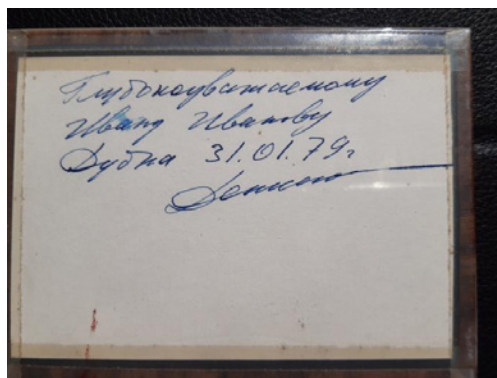 Глубокоуважаемому
Ивану Иванову
Дубна 31.01.79г